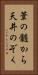 葦の髄から
天井のぞく